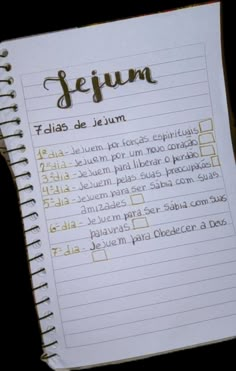 Jejum
7 dias de jejum
1º dia - Jejuem por forças espirituais
2º dia - Jejuem por um novo coração
3º dia - Jejuem para liberar o perdão
4º dia - Jejuem pelas suas preocupações
5º dia - Jejuem para ser Sábia com suas
amizades
6º dia - Jejuem para ser Sábia com suas
palavras
7º dia - Jejuem para Obedecer a Deus